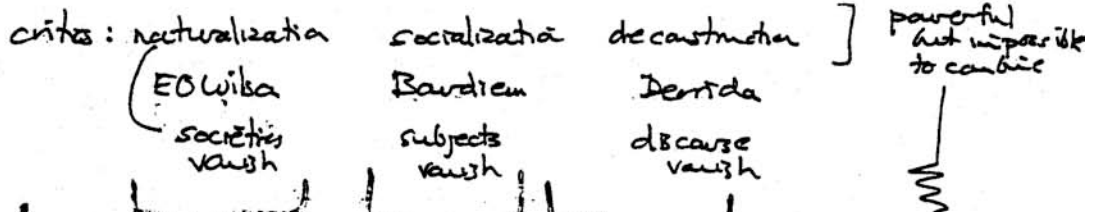 critics: naturalization socialization deconstruction ] powerful
but impossible
to combine
EO Wilson Bourdieu Derrida
societies subjects discourse
vanish vanish vanish